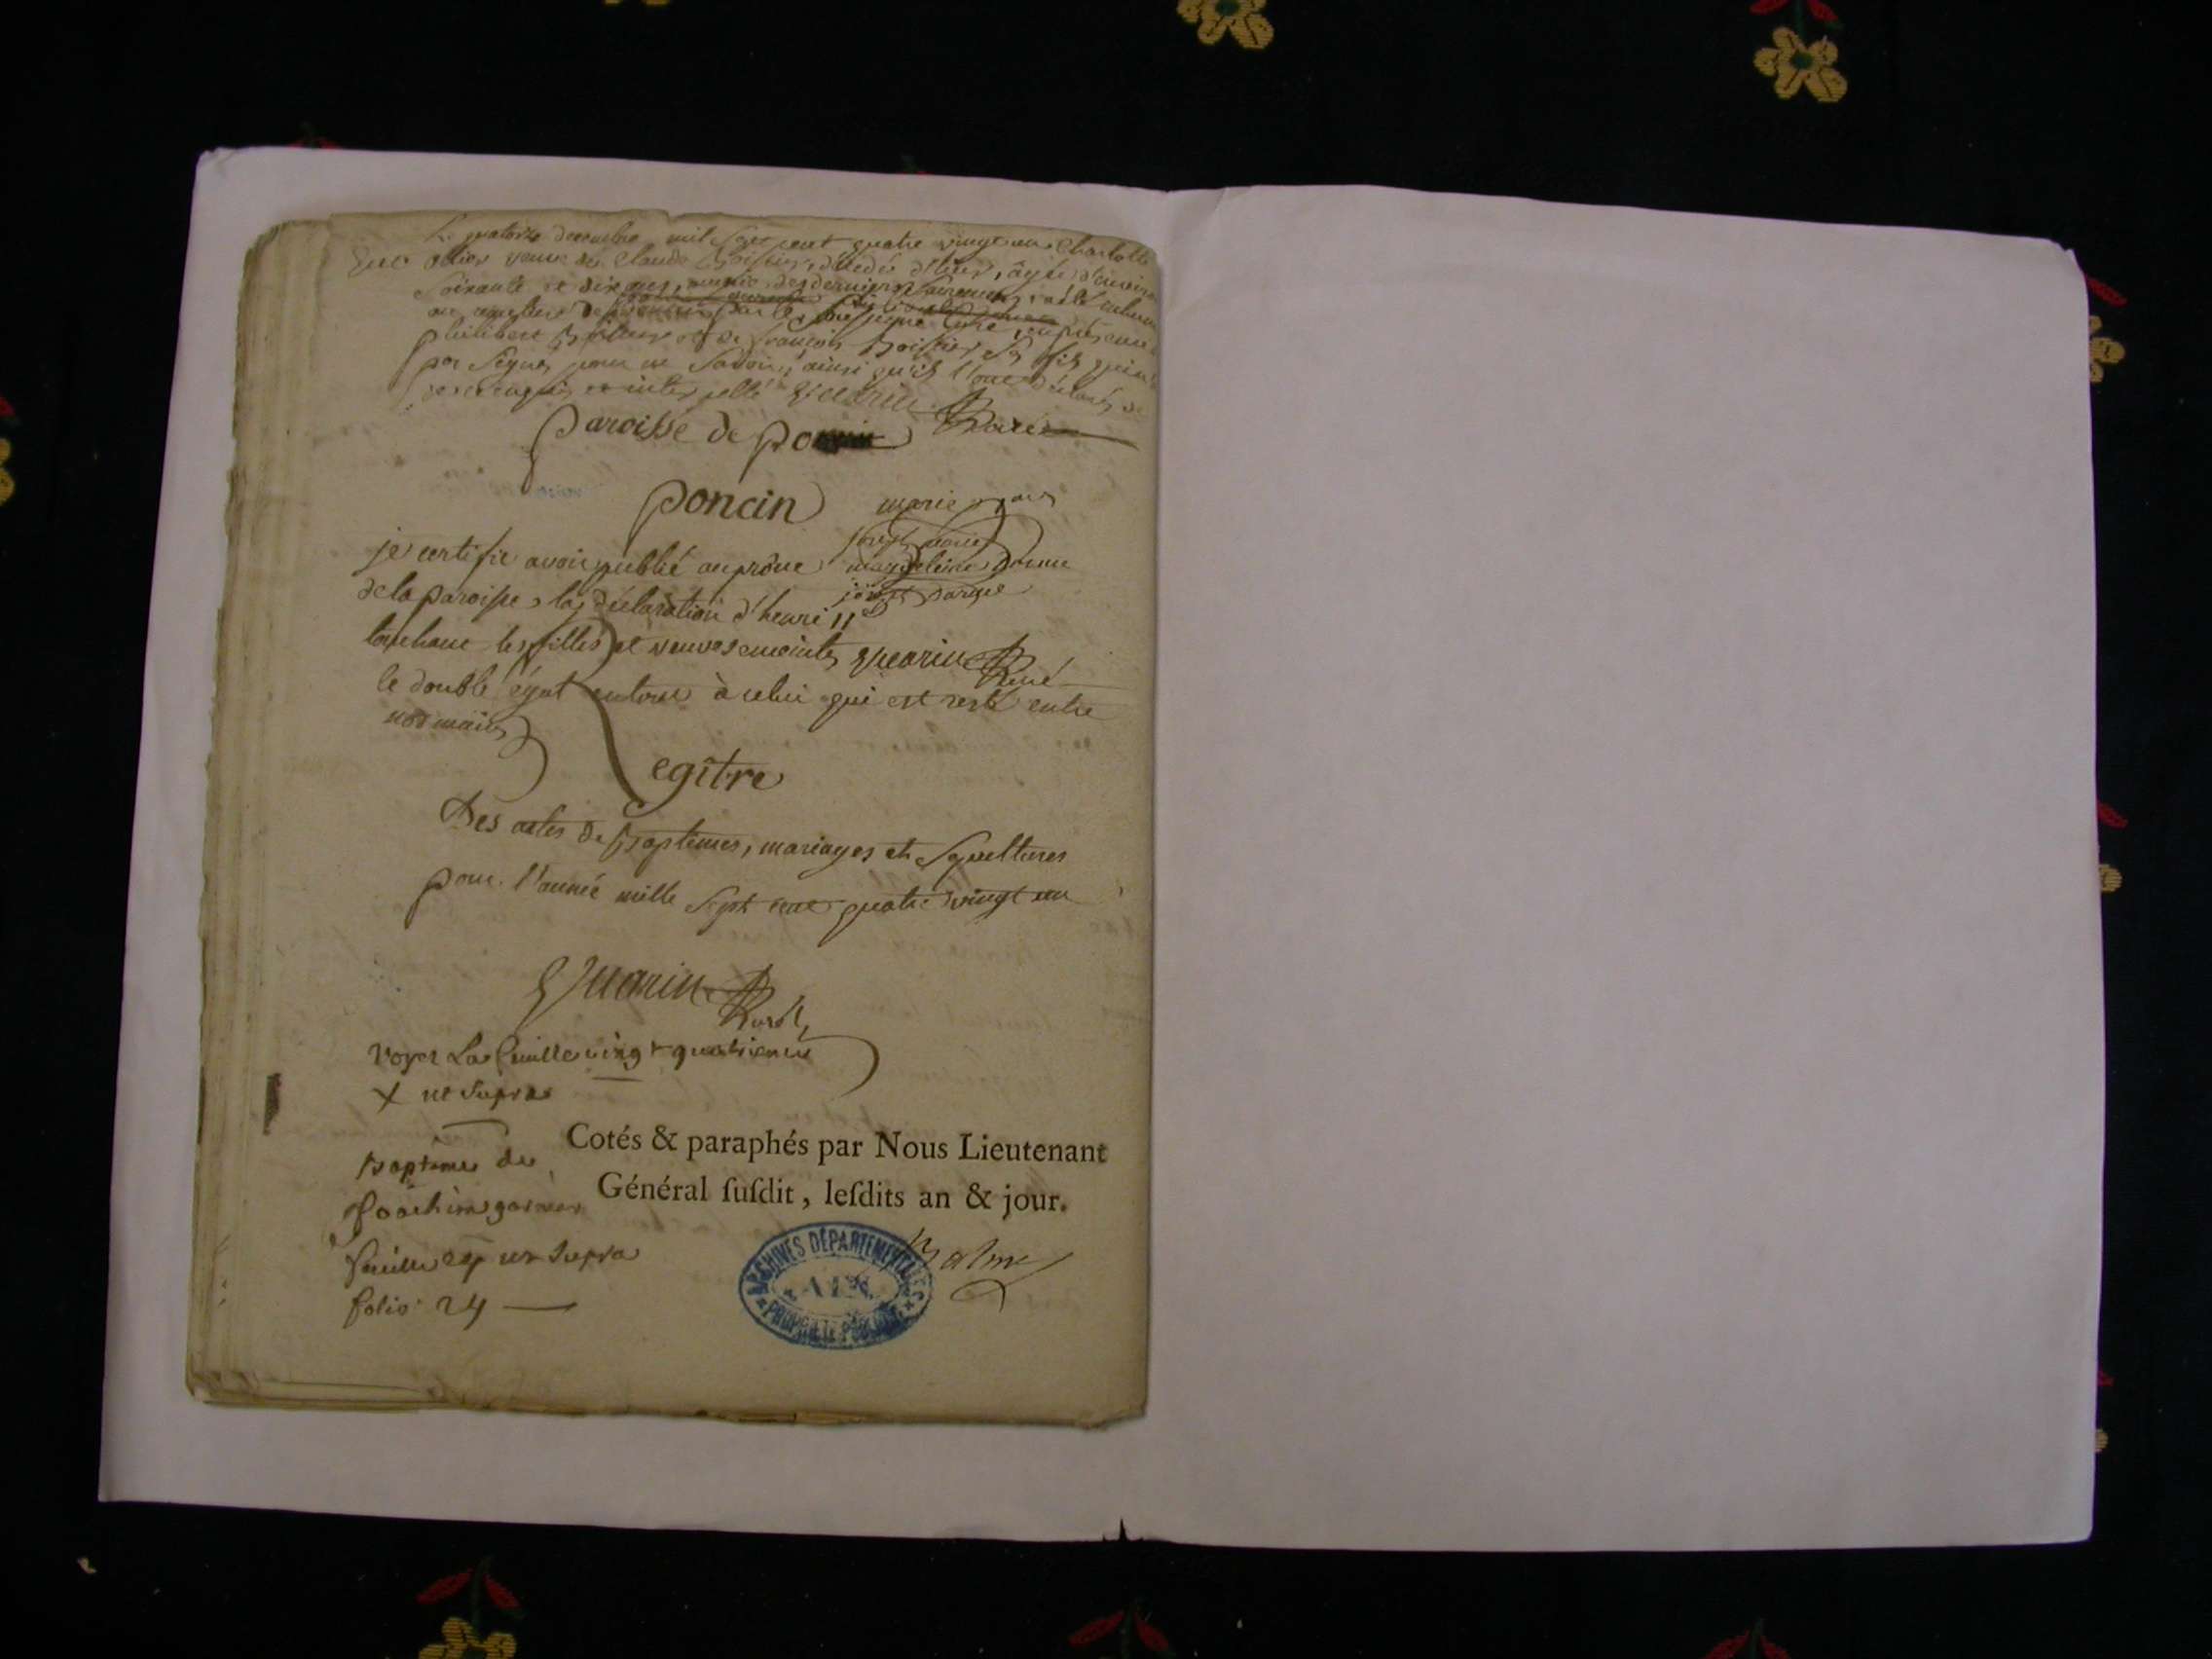 Le quatorze decembre mil sept cent quatre vingt un Charlotte
veuve de Claude décédée d'hier, âgée d'environ
soixante et dix ans, munie des derniers sacrements, a été
au cimetière par le soussigné Curé, en présence
philibert et de françois ses fils qui n'ont
pas signé pour ne savoir, ainsi qu'ils l'ont déclaré de
ce requis et interpellé Guarin Curé
Paroisse de
Poncin
marie
joseph marie
magdeleine
je certifie avoir publié au prône
de la paroisse, la déclaration d'henri II
touchant les filles et veuves enceintes Guarin Curé
le double égal en tout à celui qui est resté entre
nos mains
Regître
Des actes de Baptêmes, mariages et Sepultures
pour l'année mille sept cent quatre vingt un
Guarin Curé
voyez La feuille vingt quatrieme
X ut supra
Baptême de
joachim garnier
feuille 24 ut supra
folio 24
Cotés & paraphés par Nous Lieutenant
Général ſuſdit, leſdits an & jour.
ARCHIVES DÉPARTEMENTALES
AIN
PROPRIÉTÉ PUBLIQUE